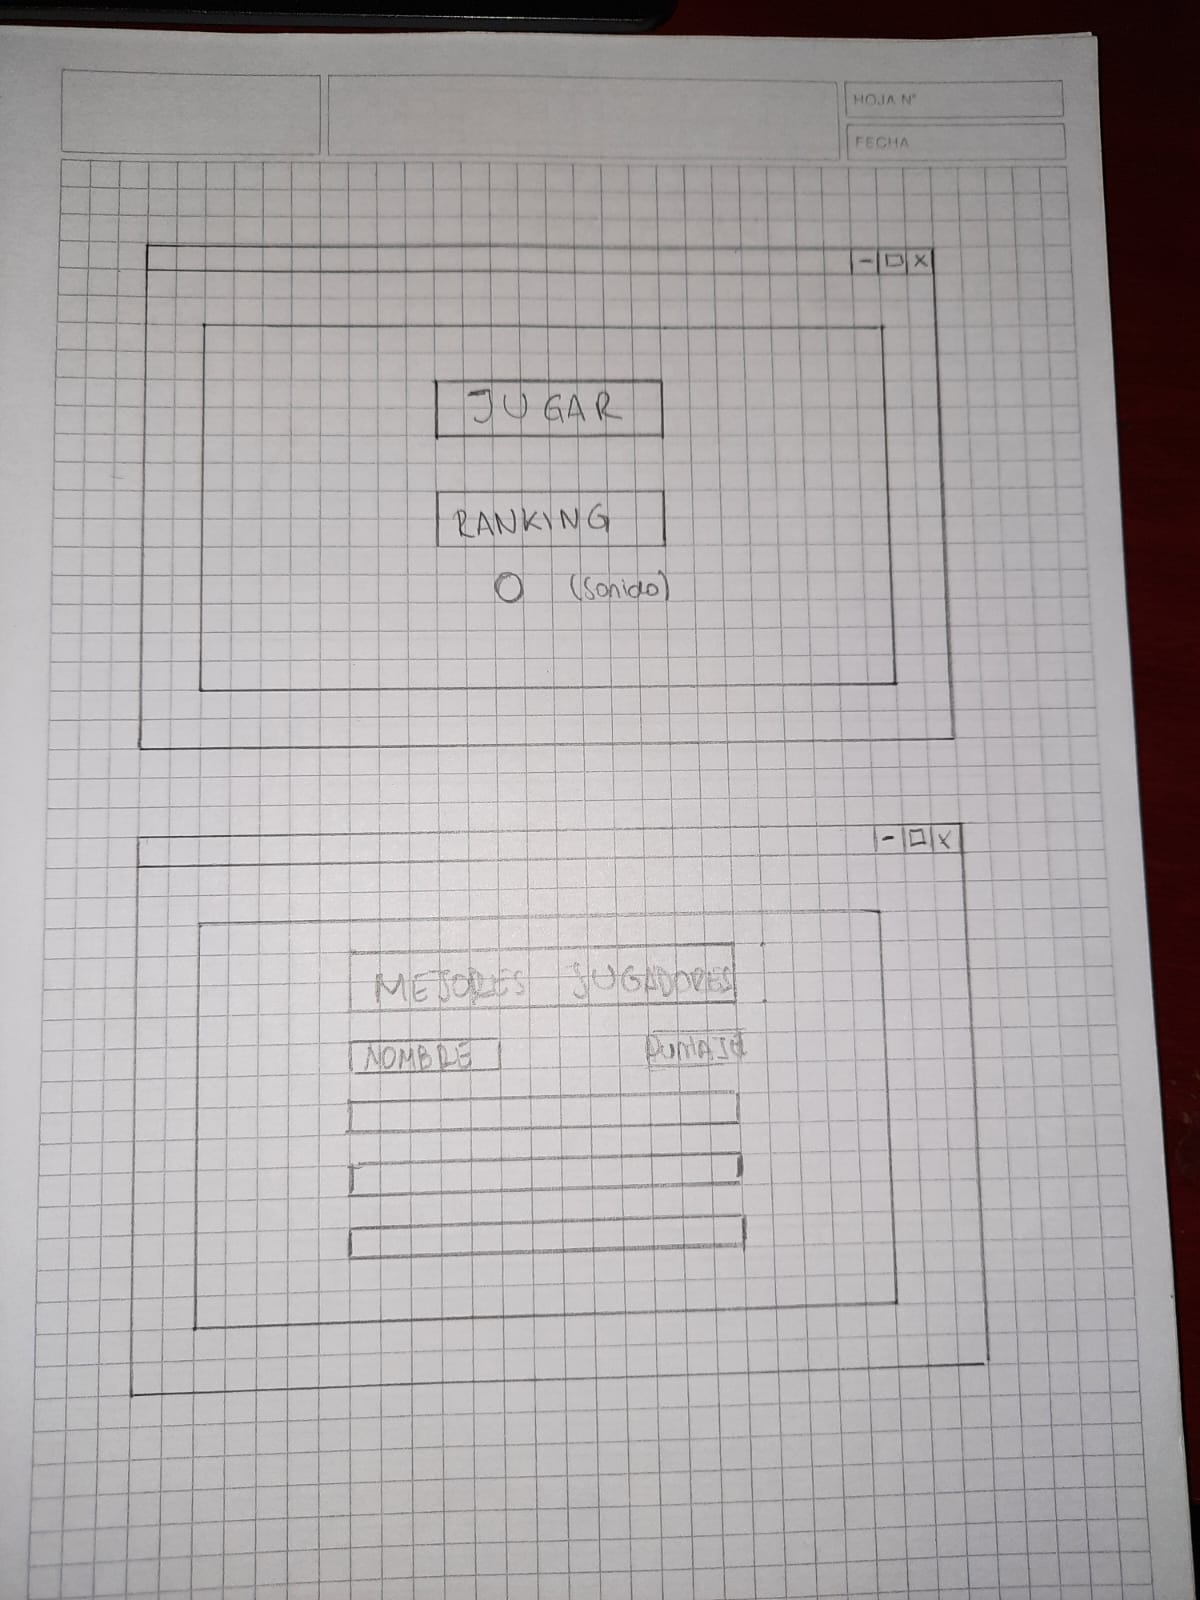 HOJA N°
FECHA
JUGAR
RANKING
(Sonido)
MEJORES JUGADORES
NOMBRE PUNTAJE